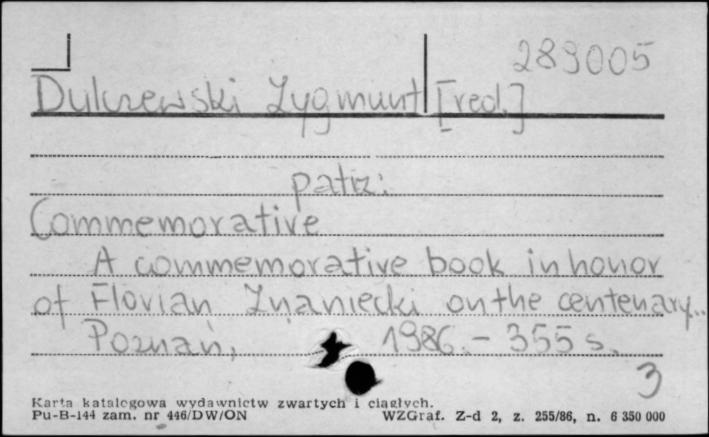 289005
Dulczewski Zygmunt [red.]
patrz:
Commemorative
A commemorative book in honor
of Florian Znaniecki on the centenary..
Poznań, 1986. - 355 s.
3
Karta katalogowa wydawnictw zwartych i ciągłych.
Pu-B-144 zam. nr 446/DW/ON WZGraf. Z-d 2, z. 255/86, n. 6 350 000